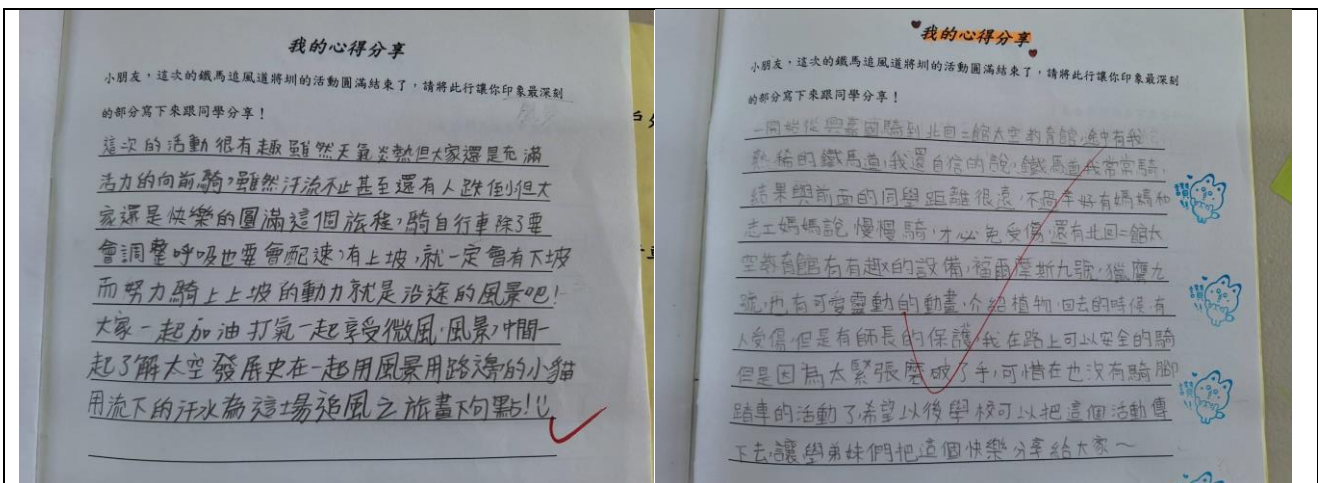 我的心得分享
小朋友，這次的鐵馬追風道將圳的活動圓滿結束了，請將此行讓你印象最深刻
的部分寫下來跟同學分享！
這次的活動很有趣雖然天氣炎熱但大家還是充滿
活力的向前騎，雖然汗流不止甚至還有人跌倒但大
家還是快樂的圓滿這個旅程，騎自行車除了要
會調整呼吸也要會配速，有上坡，就一定會有下坡
而努力騎上上坡的動力就是沿途的風景吧！
大家一起加油打氣一起享受微風、風景，中間一
起了解太空發展史在一起用風景用路邊的小貓
用流下的汗水為這場追風之旅畫下句點！
我的心得分享
小朋友，這次的鐵馬追風道將圳的活動圓滿結束了，請將此行讓你印象最深刻
的部分寫下來跟同學分享！
一開始從興嘉國騎到北回二館太空教育館，途中有我
熟稀的鐵馬道，我還自信的說，鐵馬道我常常騎，
結果與前面的同學距離很遠，不過幸好有媽媽和
志工媽媽說，慢慢騎，才必免受傷，還有北回二館太
空教育館有有趣的設備，福爾摩斯九號，獵鷹九
號，也有可愛靈動的動畫，介紹植物，回去的時候有
人受傷，但是有師長的保護，我在路上可以安全的騎
但是因為太緊張磨破了手，可惜在也沒有騎腳
踏車的活動了，希望以後學校可以把這個活動傳
下去，讓學弟妹們把這個快樂分享給大家～
讚
讚
讚